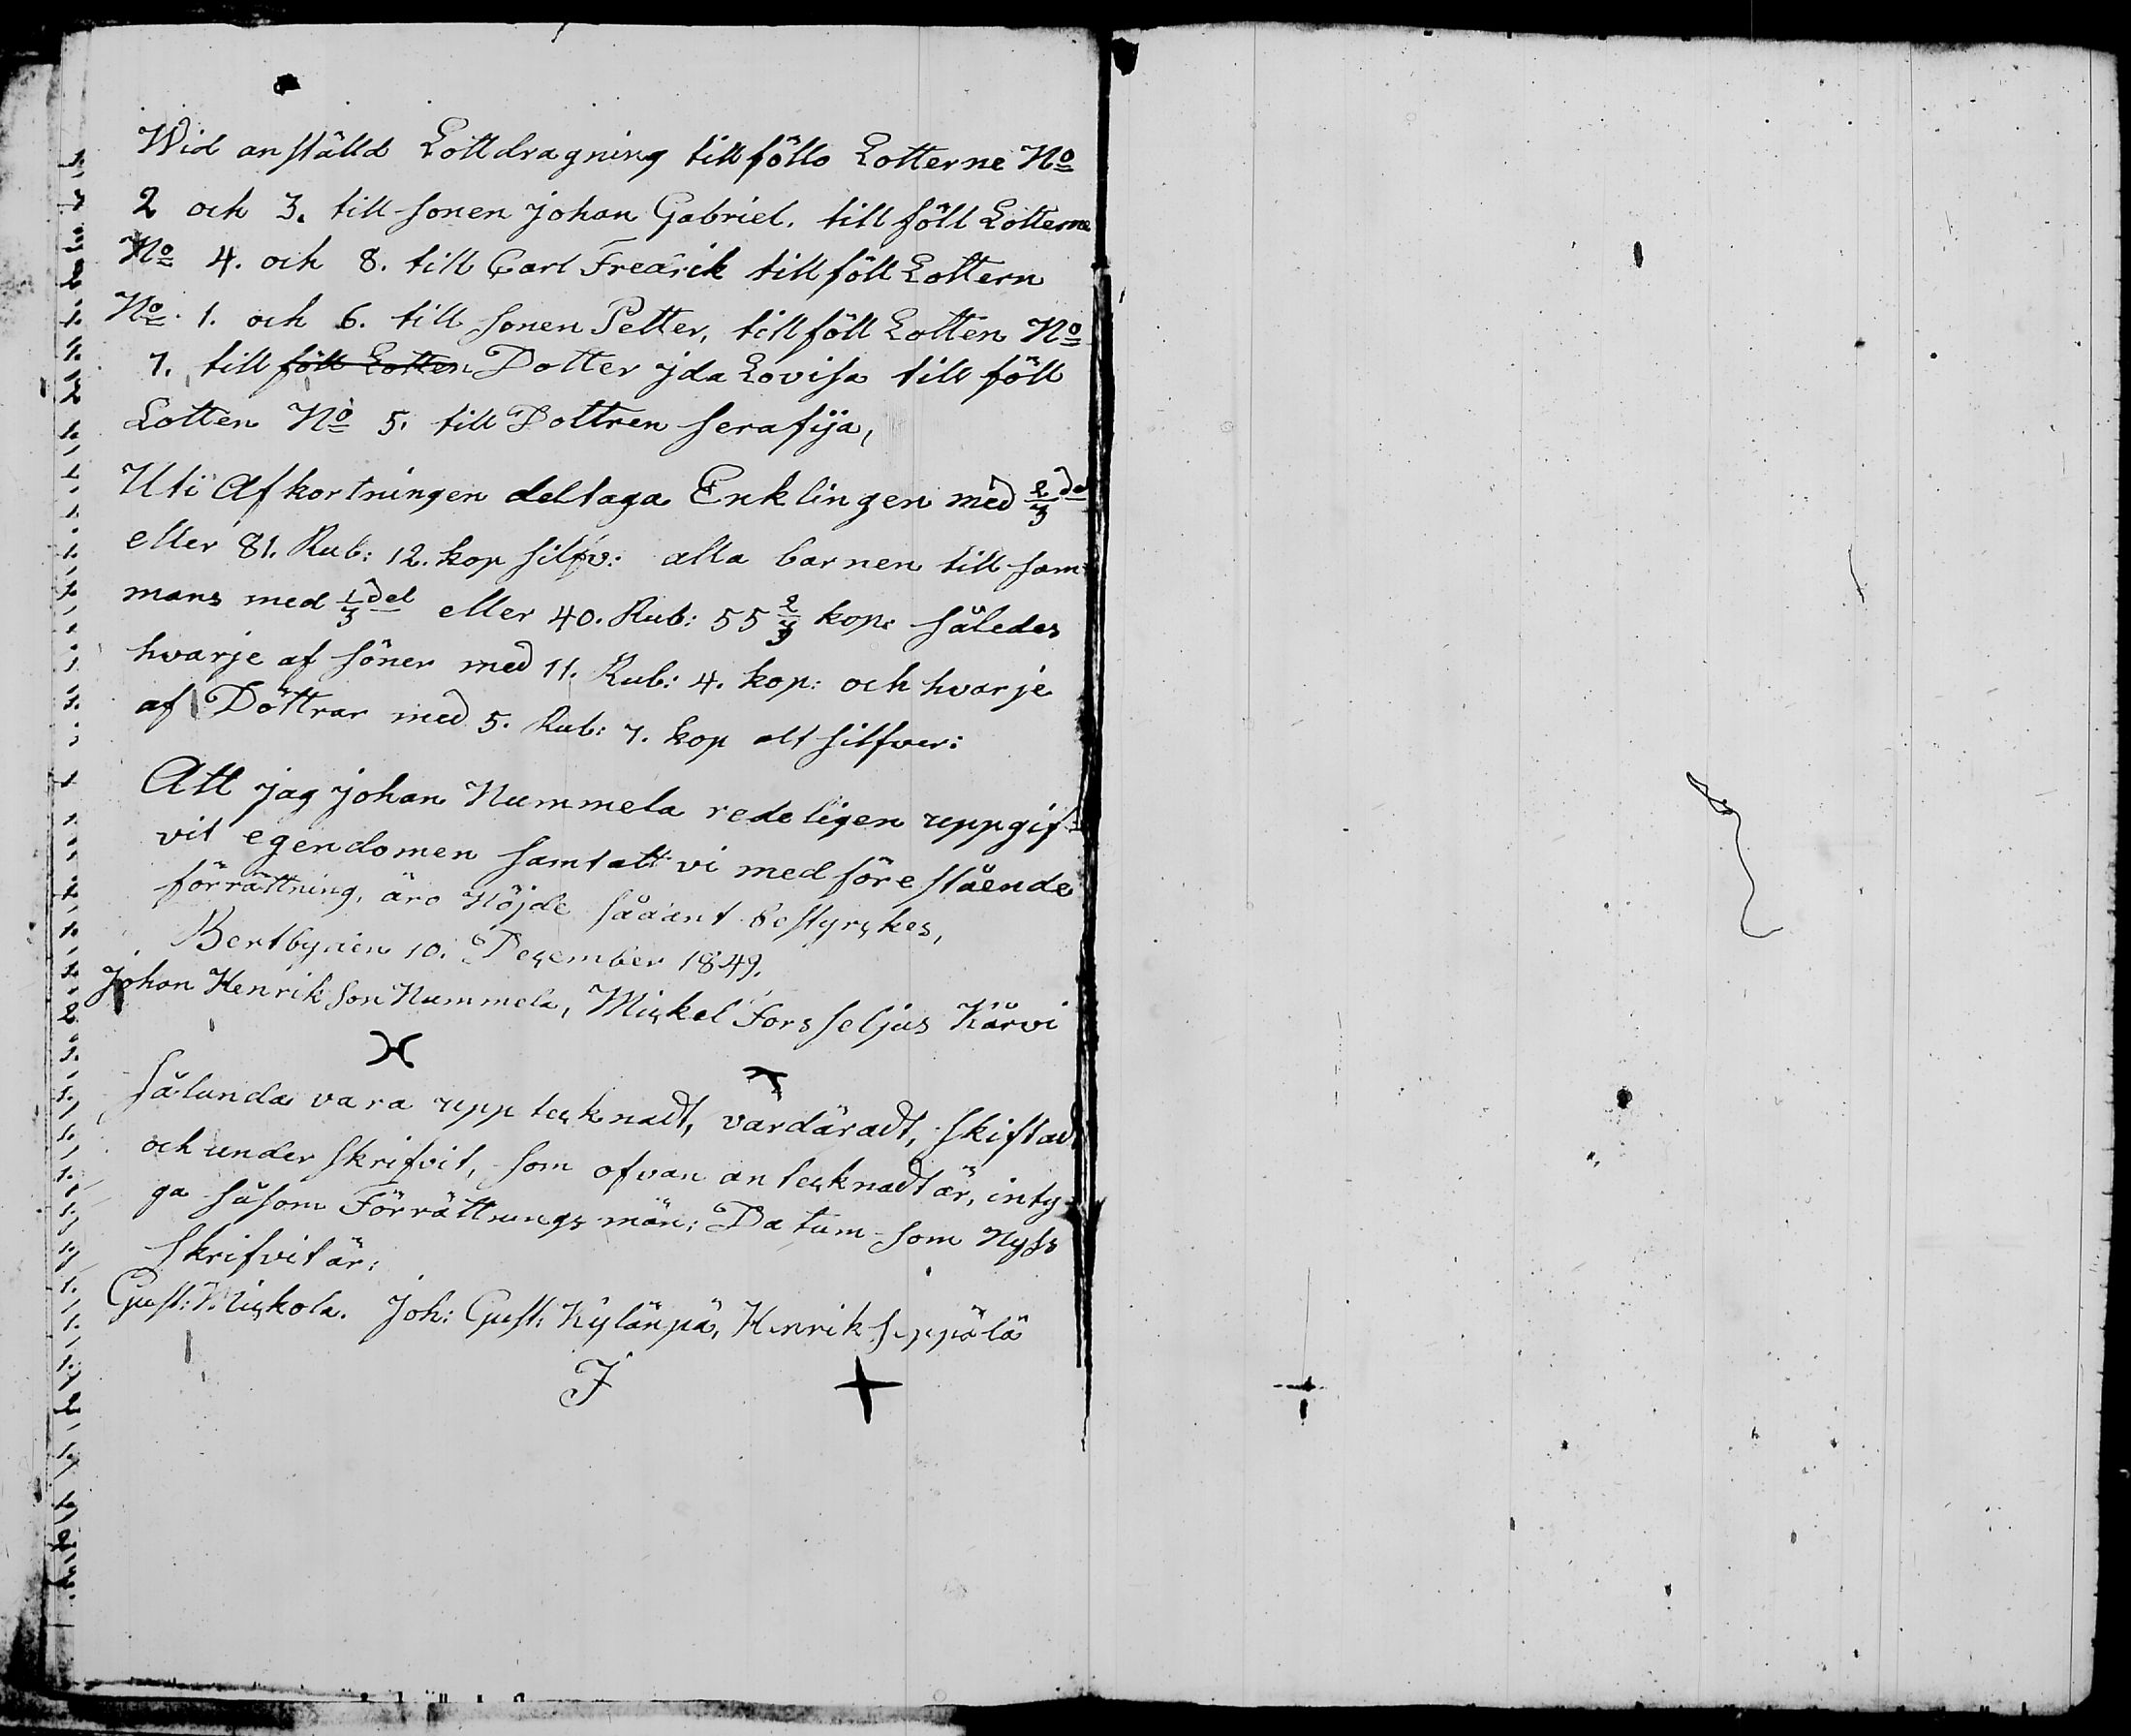 Wid anställd Lottdragning tillföllo Lotterne No
2 och 3. till sonen Johan Gabriel. till föll Lotterne
No 4. och 8. till Carl Fredrik till föll Lottern
No. 1. och 6. till sonen Petter, tillföll Lotten No
7. till föll Lotten Dotter Jda Lovisa till föll
Lotten No 5. till Dottren Serafija,
Uti Afkortningen deltaga Enklingen med 2/3 del
eller 81. Rub: 12. kop silfv: alla barnen till sam
mans med 1/3 Del eller 40. Rub: 55 2/3 kop: således
hvarje af söner med 11. Rub: 4. kop: och hvarje
af Döttrar med 5. Rub: 7. kop alt silfver:
Att jag Johan Nummela redeligen uppgif
vit egendomen samt att vi med förestående
förrättning, äro Nöjde sådant bestyrckes,
Bertbynen 10. December 1849.
Johan Henrikson Nummela, Mickel Forsseljus Kärvi
Sålunda vara upptecknadt, värdäradt, skiftad
och underskrifvit, som ofvan antecknadt är, inty
ga såsom Förrättnungs män: Datum som Nyss
skrifvit är:
Gust: Mickola. Joh: Gust: Kylänpä, Henrik Seppälä
J